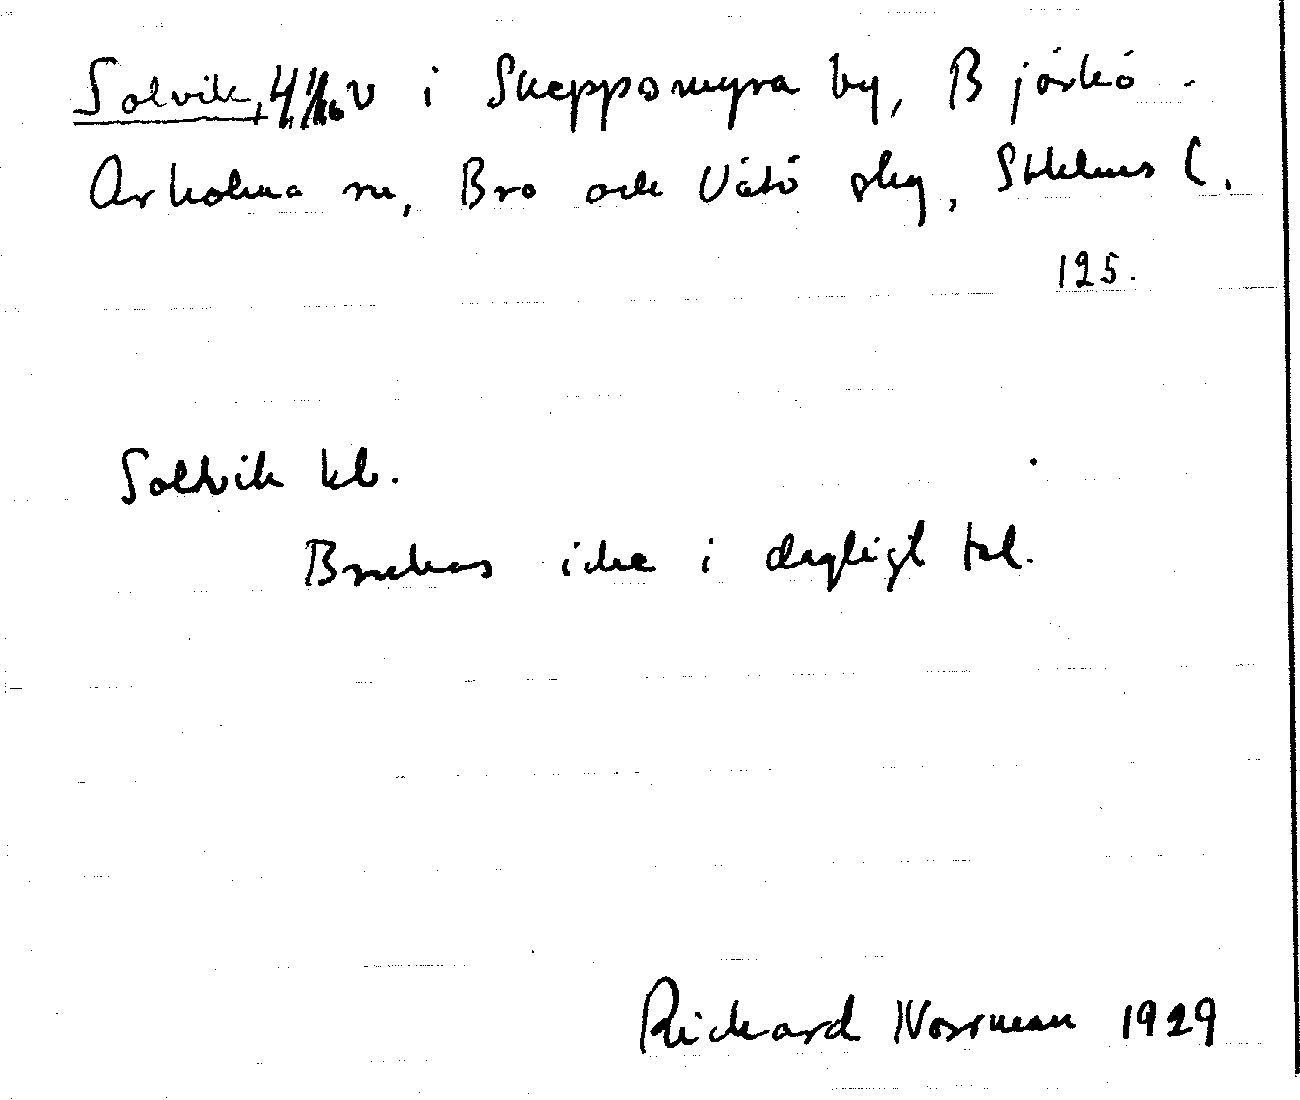 Solvik, 4 1/16 V i Skeppsmyra by, Björkö -
Arholma sn, Bro och Vätö skg, Sthlms l.
125.
Sollvik kb.
Brukas icke i dagligt tal.
Rickard Norrman 1929